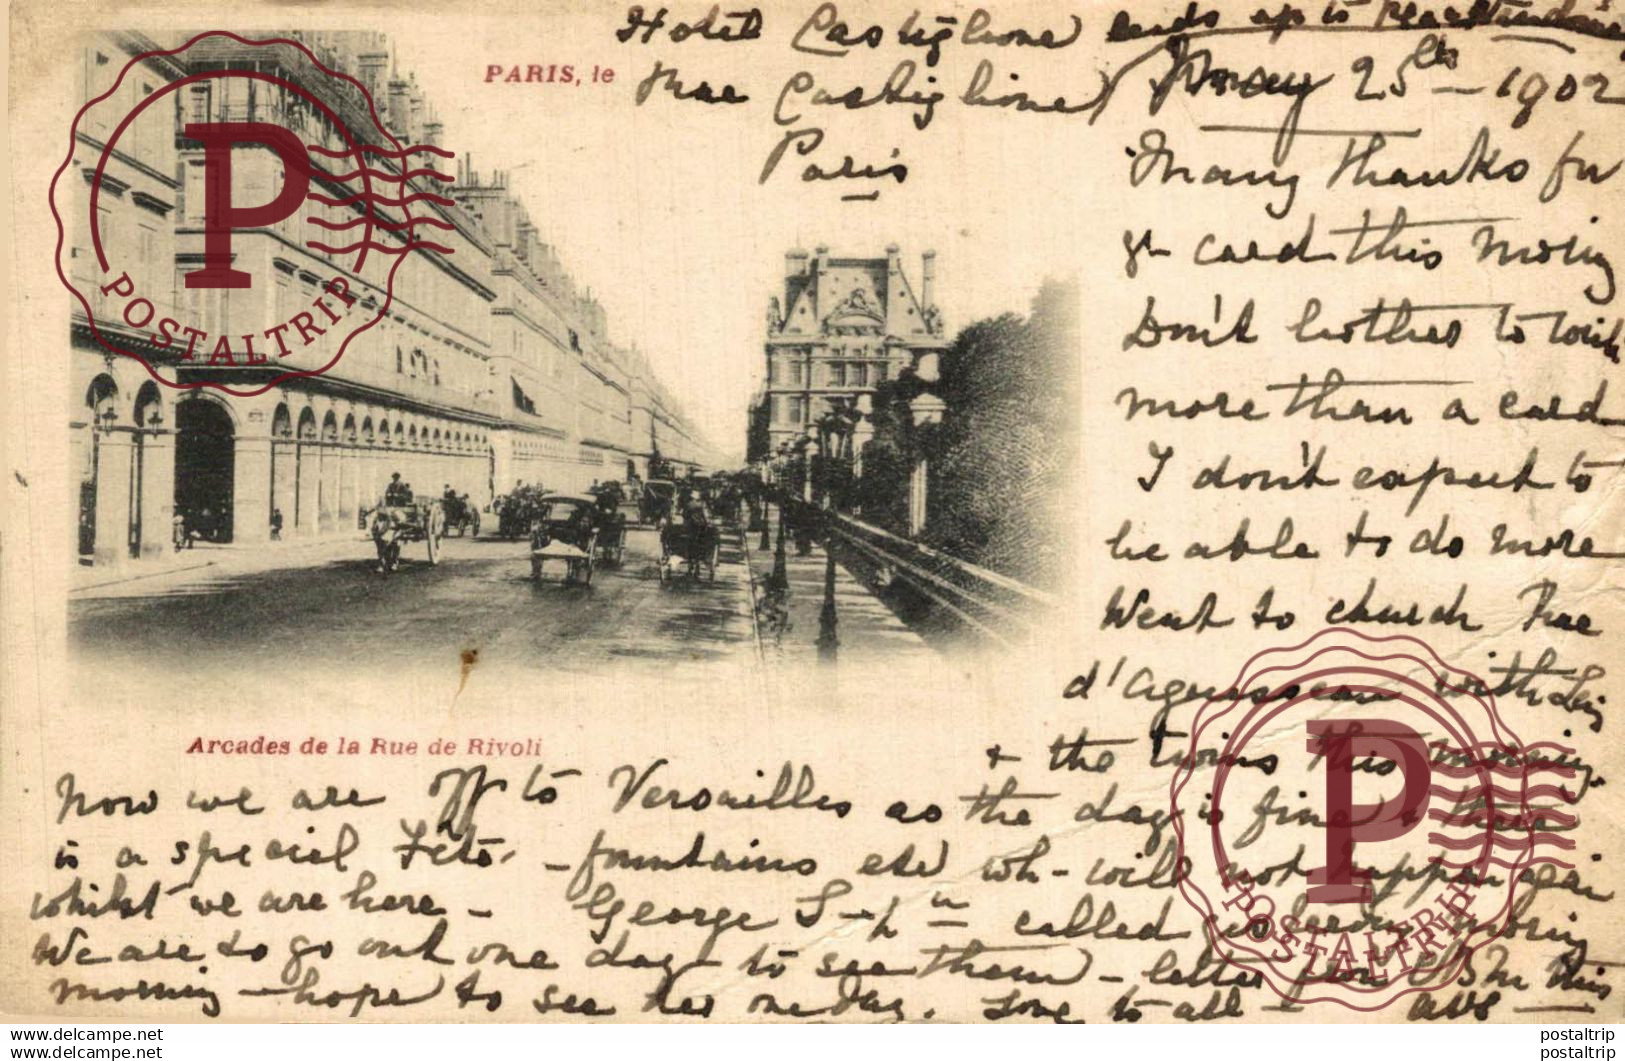 Hotel Castiglione ends up to
PARIS, le
Rue Castiglione May 25th - 1902
Paris
Many thanks for
yr card this morning
Don't bother to write
more than a card
I don't expect to
be able to do more
Went to church Rue
d'Aguesseau with
& the twins this morning.
Arcades de la Rue de Rivoli
Now we are off to Versailles as the day is fine & there
is a special Fête - fountains etc wh- will not happen again
whilst we are here - George called
We are to go out one day to see them - letter from this
morning - hope to see her one day. Love to all -
POSTALTRIP
POSTALTRIP
www.delcampe.com
www.delcampe.com
postaltrip
postaltrip